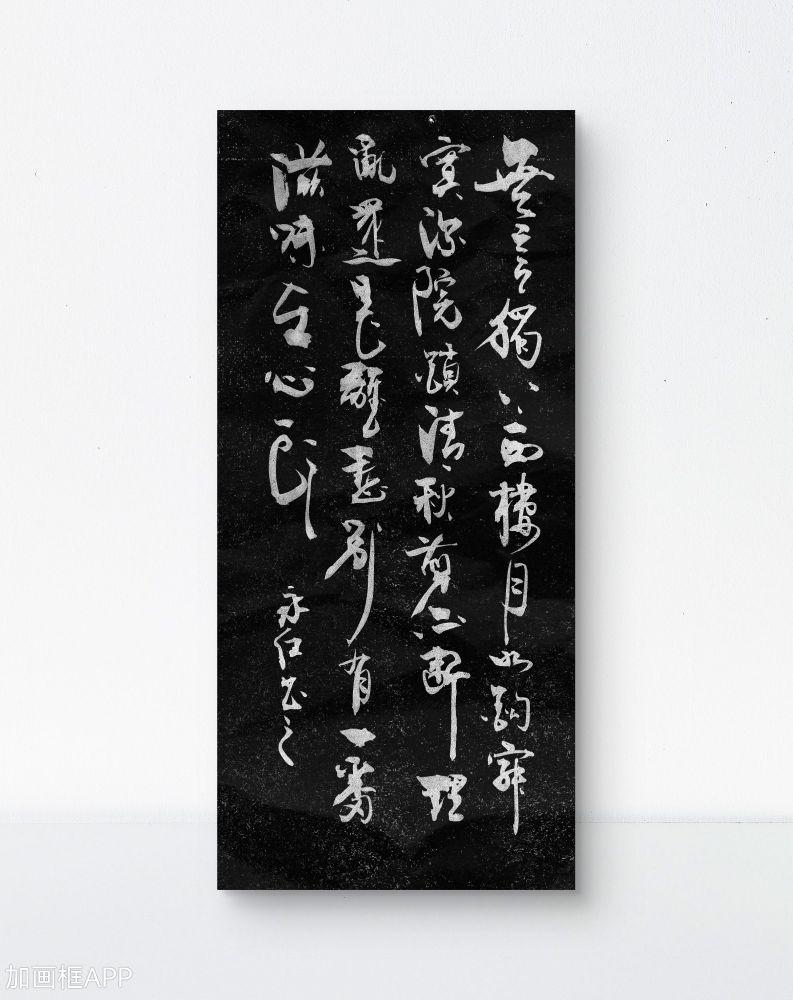 無言獨上西樓月如鉤寂
寞深院鎖清秋剪不斷理
亂還是離愁別有一番
滋味在心頭
永 书之
加画框APP